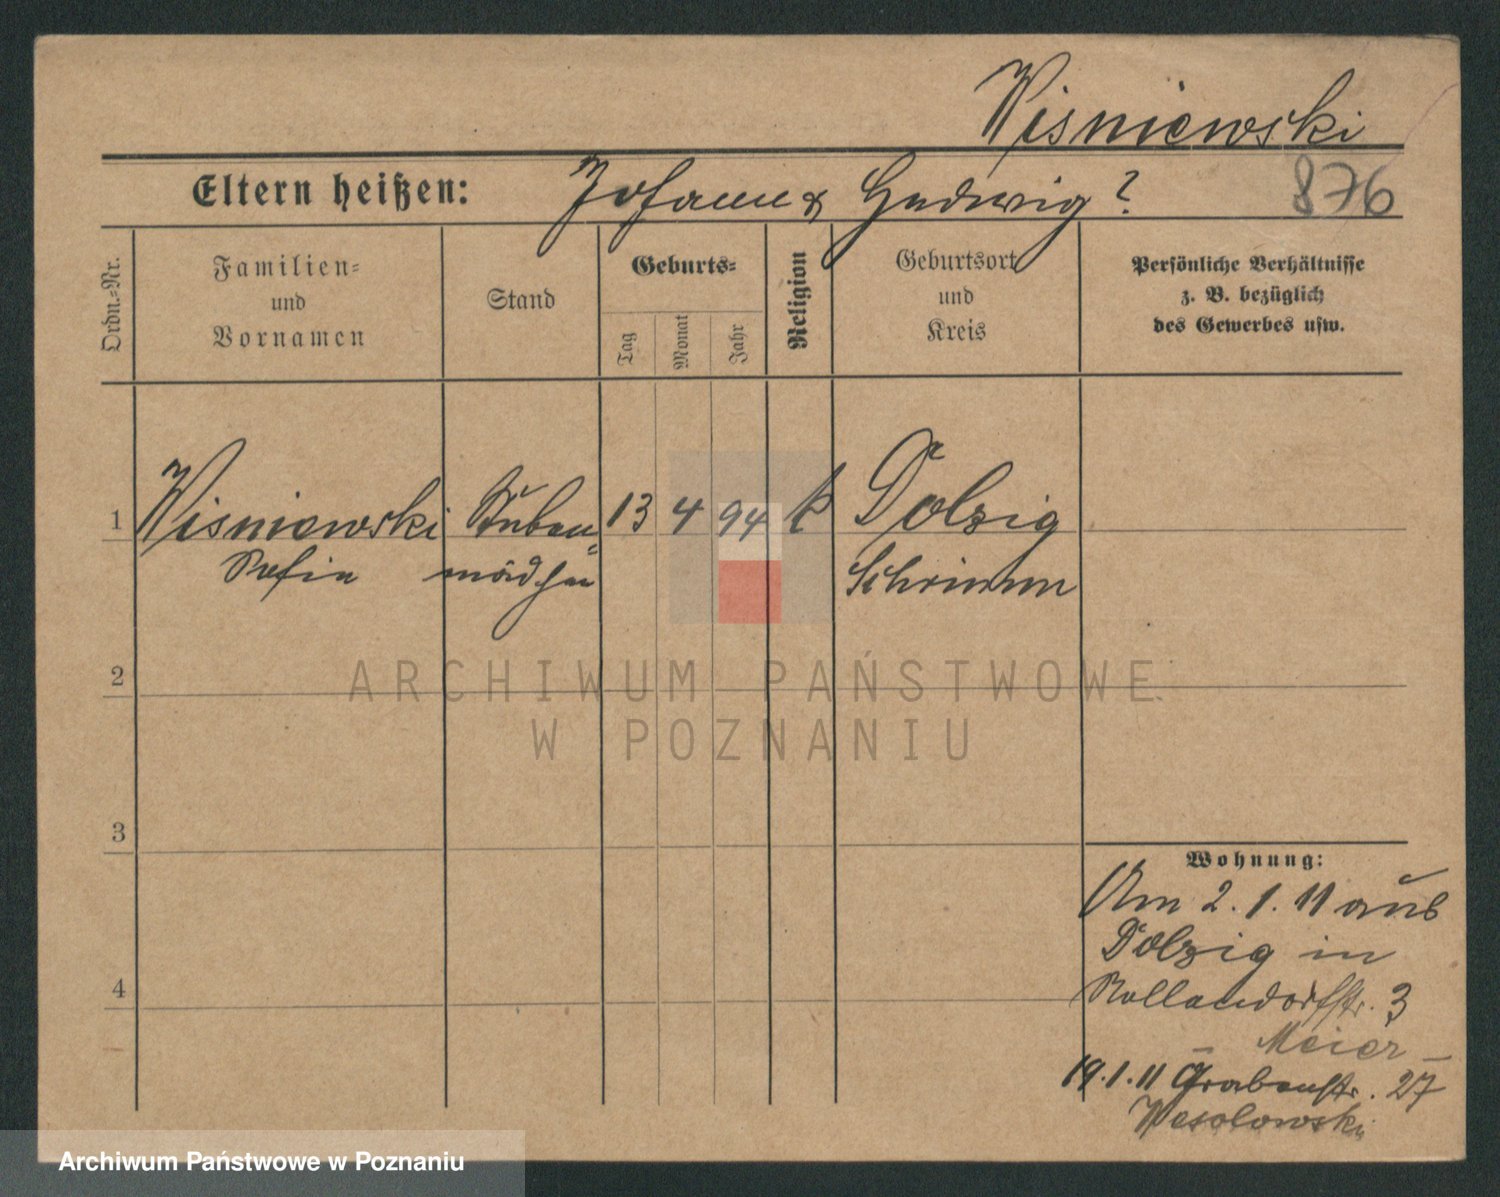 Wisniewski
Eltern heißen: Johann & Hedwig?
876
Ordn.-Nr.
Familien-
und
Vornamen
Stand
Geburts-
Tag
Monat
Jahr
Religion
Geburtsort
und
Kreis
Persönliche Verhältnisse
z. B. bezüglich
des Gewerbes usw.
1 Wisniewski Stuben- 13 4 94 k Dolzig
Sofie mädchen Schrimm
ARCHIWUM PAŃSTWOWE
W POZNANIU
2
3
4
Wohnung:
Am 2.1.11 aus
Dolzig in
3
Meier
19.1.11 Grabenstr. 27
Wesolowski
Archiwum Państwowe w Poznaniu